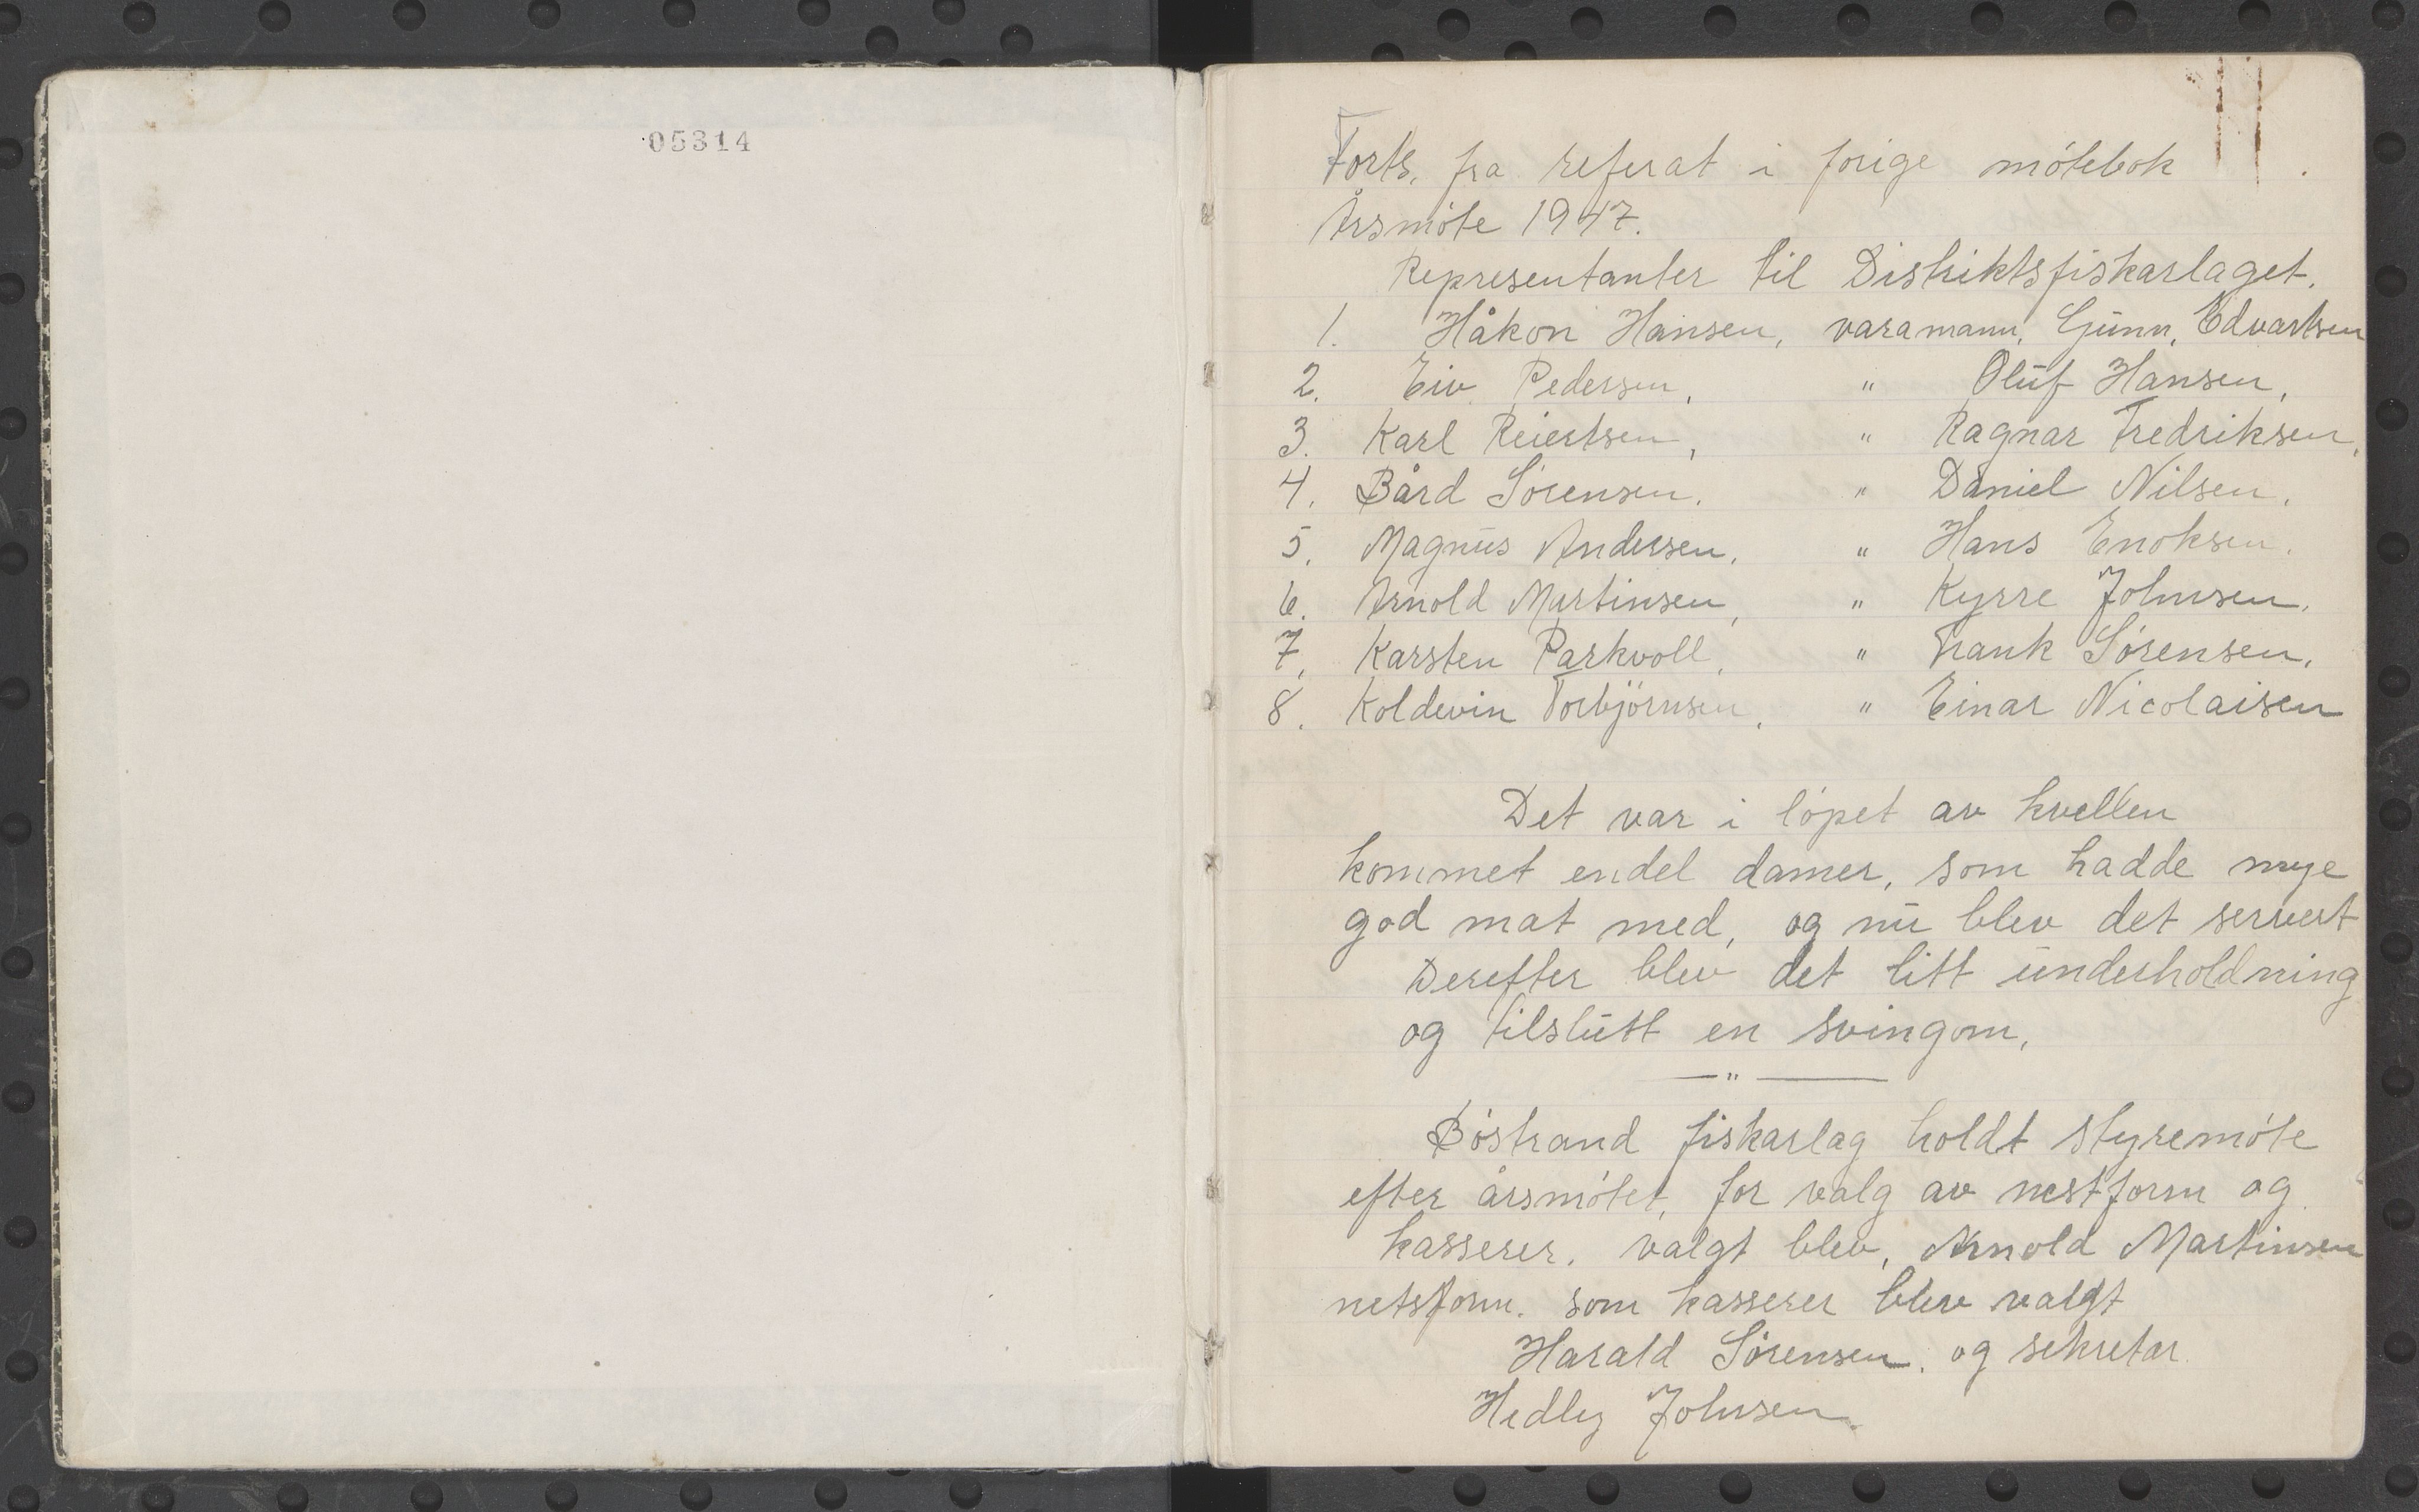 05314
Forts. fra referat i forige mötebok
Årsmöte 1947.
Representanter til Distriktsfiskarlaget.
1. Håkon Hansen, varamann, Gunn. Edvartsen
2. Eiv. Pedersen, " Oluf Hansen,
3. Karl Reiertsen, " Ragnar Fredriksen,
4. Bård Sörensen. " Daniel Nilsen.
5. Magnus Andersen, " Hans Enoksen.
6. Arnold Martinsen, " Kyrre Johnsen.
7. Karsten Parkvoll, " Frank Sörensen.
8. Koldevin Torbjörnsen, " Einar Nicolaisen
Det var i löpet av kvellen
kommet endel damer, som hadde mye
god mat med, og nu blev det servert
Derefter blev det litt underholdning
og tilslutt en svingom.
— " —
Böstrand fiskarlag holdt styremöte
efter årsmötet, for valg av nestform og
kasserer. valgt blev, Arnold Martinsen
netsform. som kasserer blev valgt
Harald Sörensen. og sekretær
Hedley Johnsen.